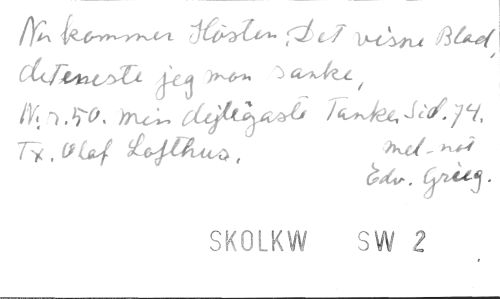 Nu kommer Hösten, Det visne Blad,
det eneste jeg mon sanke,
N:r.50. min dejligaste Tanke. Sid. 74.
Tx. Olaf Lofthus. mel-not
Edv. Grieg.
SKOLKW SW 2